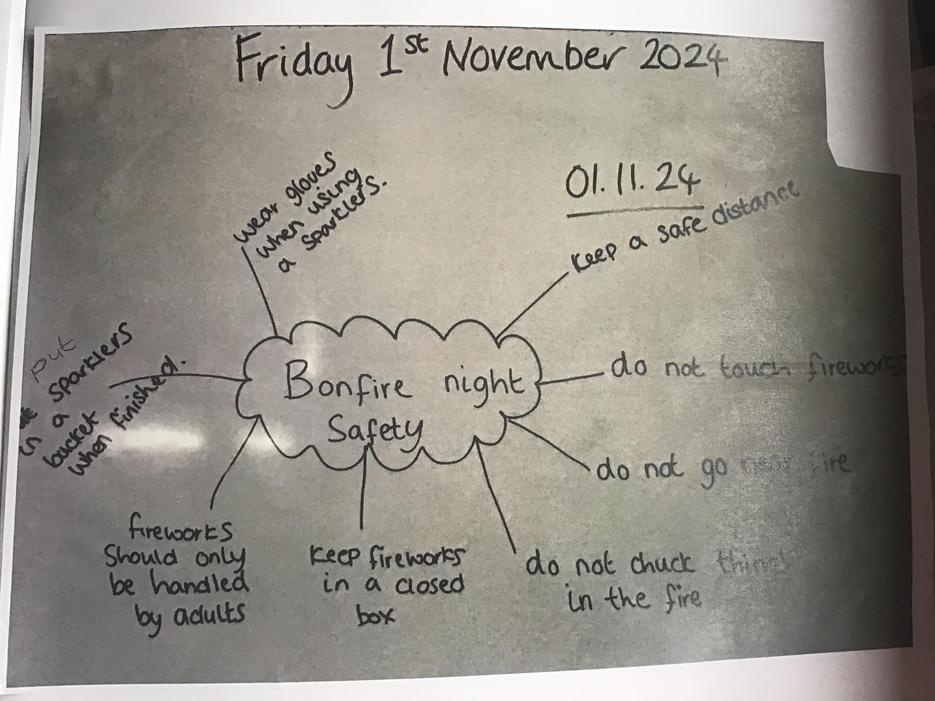 Friday 1st November 2024
01.11.24
wear gloves
when using
a sparklers.
keep a safe distance
put
sparklers
in a
bucket
when finished.
Bonfire night
Safety
do not touch fireworks
do not go near fire
fireworks
Should only
be handled
by adults
Keep fireworks
in a closed
box
do not chuck things
in the fire